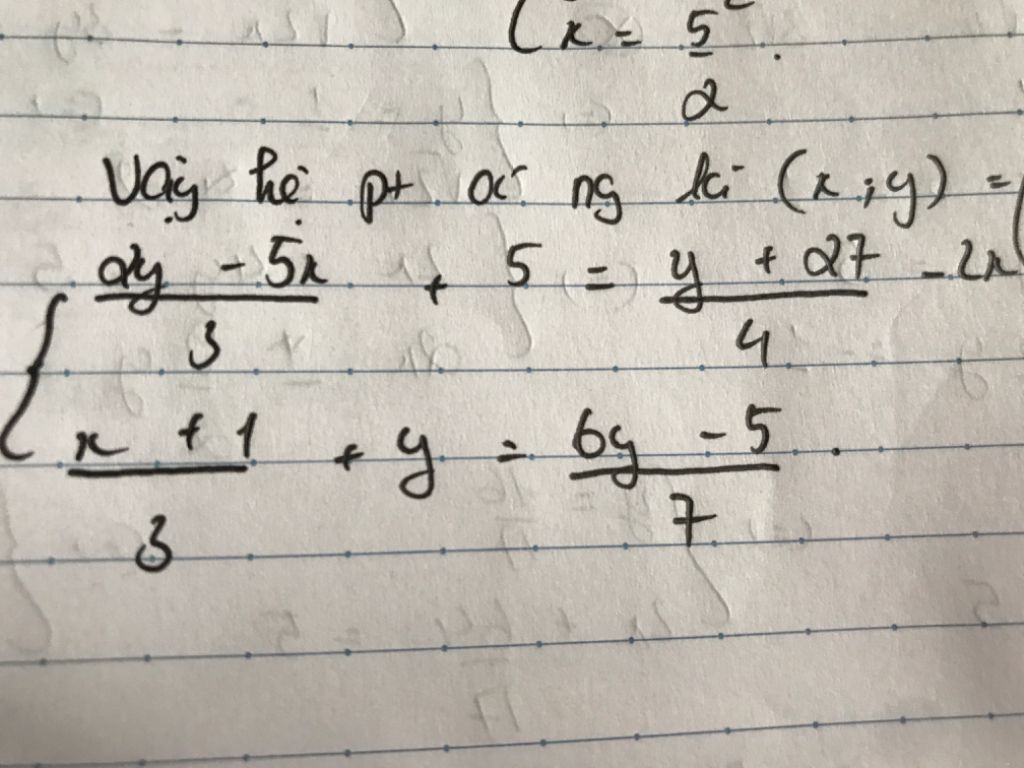 x = 5/2.
Vậy hệ pt có ng là (x ; y) = (
{ (2y - 5x)/3 + 5 = (y + 27)/4 - 2x
(x + 1)/3 + y = (6y - 5)/7.